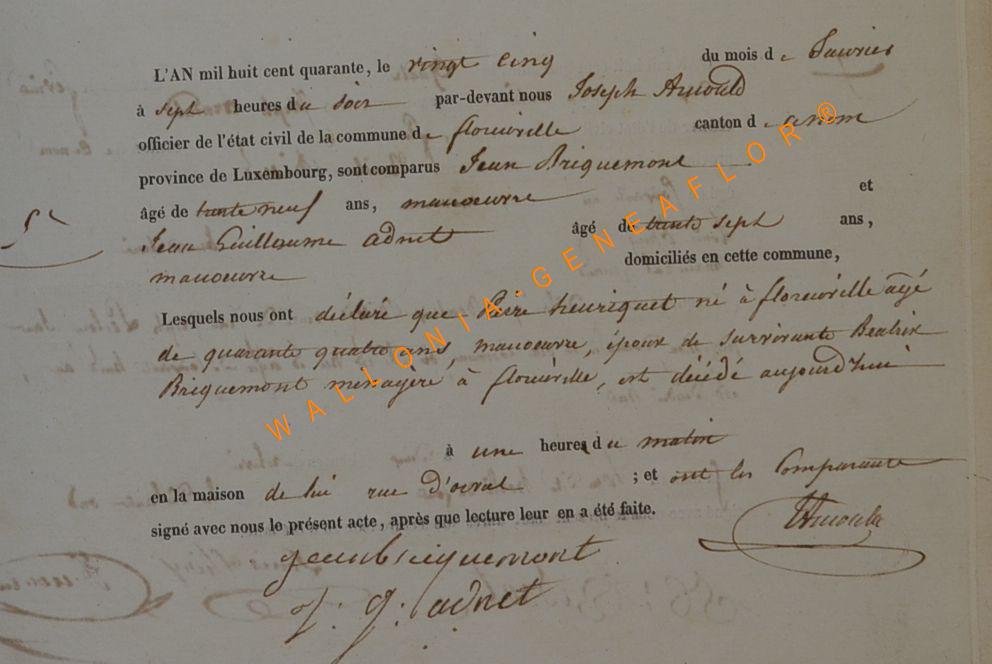 L'AN mil huit cent quarante, le vingt cinq du mois de Janvier
à sept heures du soir par-devant nous Joseph Arnould
officier de l'état civil de la commune de florenville canton d
province de Luxembourg, sont comparus Jean Briquemont
âgé de trente neuf ans, manoeuvre et
Jean Guillaume adnet âgé de trente sept ans,
manoeuvre domiciliés en cette commune,
Lesquels nous ont déclaré que Pierre henriquet né à florenville agé
de quarante quatre ans, manoeuvre, époux de survivante Beatrix
Briquemont ménagère à florenville, est décédé aujourd'hui
à une heures du matin
en la maison de lui rue d'orval ; et ont les Comparants
signé avec nous le présent acte, après que lecture leur en a été faite.
JArnould
jeanbriquemont
j: g: adnet
5
WALLONIA-GENEAFLOR®